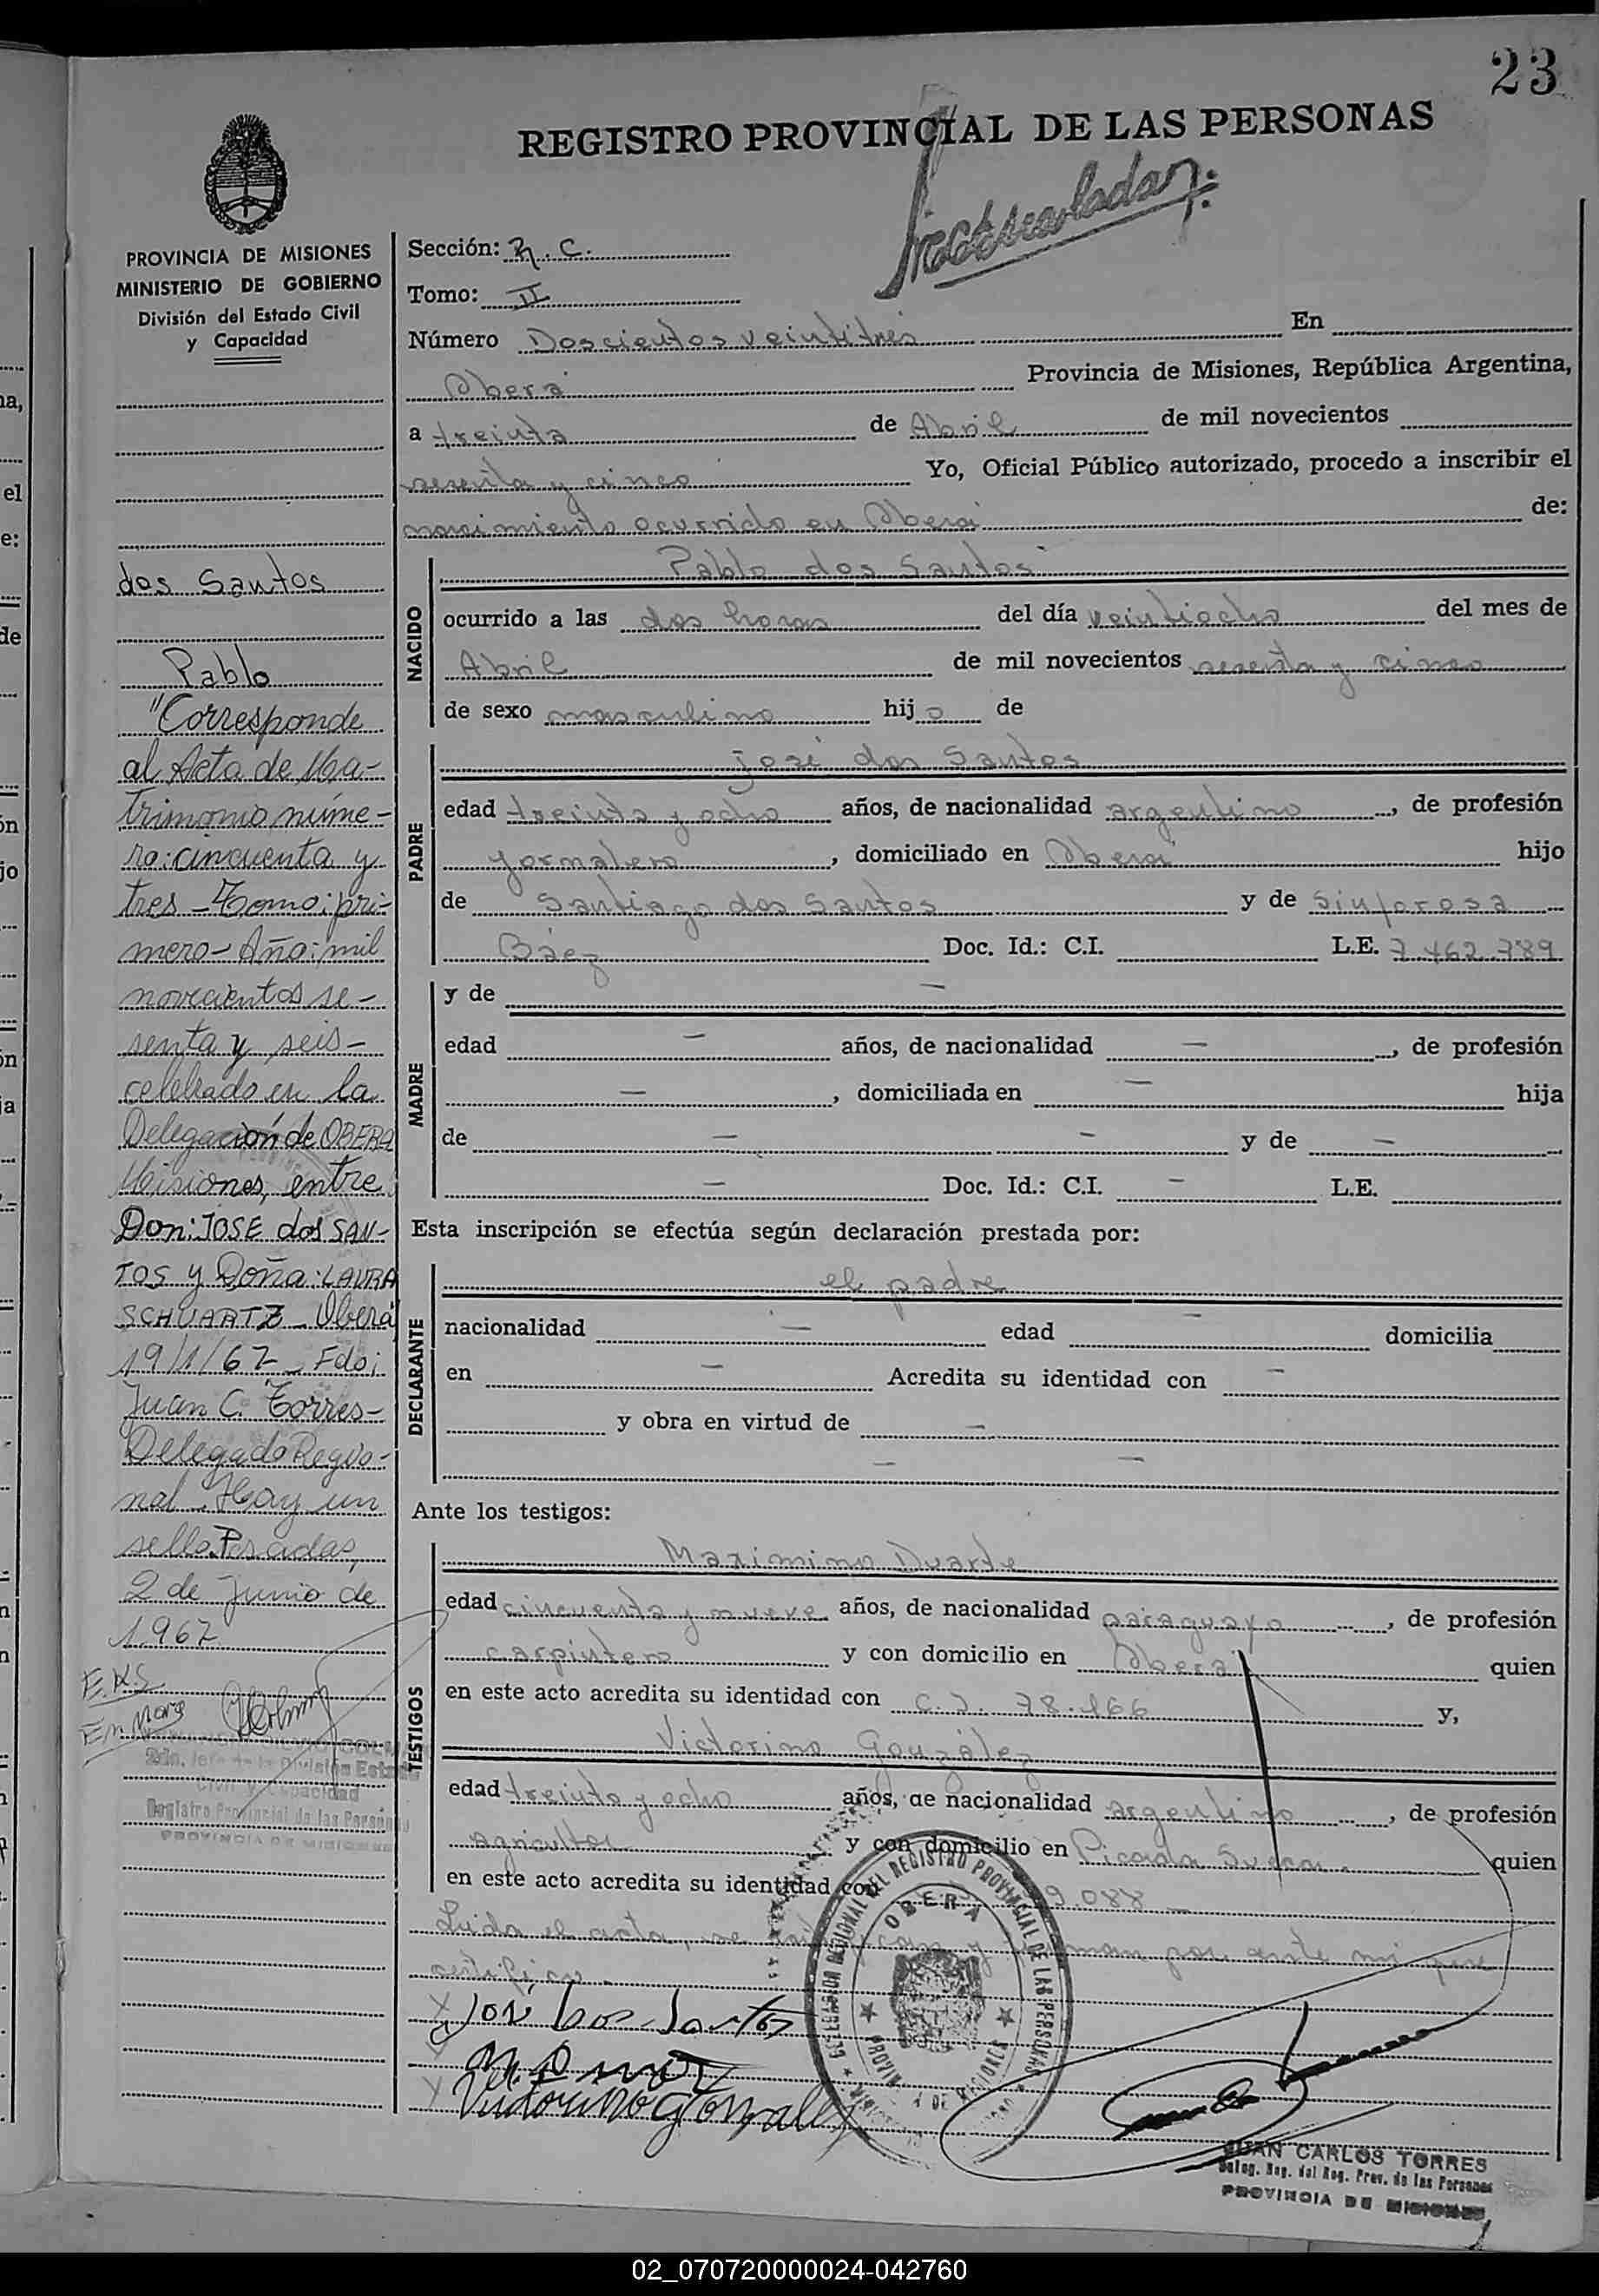 23
REGISTRO PROVINCIAL DE LAS PERSONAS
PROVINCIA DE MISIONES
MINISTERIO DE GOBIERNO
División del Estado Civil
y Capacidad
dos Santos
Pablo
"Corresponde
al Acta de Ma-
trimonio núme-
ro: cincuenta y
tres - Tomo: pri-
mero - Año: mil
novecientos se-
senta y seis -
celebrado en la
Delegación de OBERA
Misiones, entre
Don: JOSE dos SAN-
TOS y Doña: LAURA
SCHUARTZ - Oberá
19/1/67 - Fdo:
Juan C. Torres -
Delegado Regio-
nal. Hay un
sello. Posadas,
2 de Junio de
1.967
Registro Provincial de las Personas
PROVINCIA DE MISIONES
Sección: N. C.
Tomo: II
Número Doscientos veintitrés En
Oberá Provincia de Misiones, República Argentina,
a treinta de Abril de mil novecientos
sesenta y cinco Yo, Oficial Público autorizado, procedo a inscribir el
nacimiento ocurrido en Oberá de:
NACIDO
Pablo dos Santos
ocurrido a las dos horas del día veintiocho del mes de
Abril de mil novecientos sesenta y cinco
de sexo masculino hijo de
PADRE
José dos Santos
edad treinta y ocho años, de nacionalidad argentino, de profesión
jornalero, domiciliado en Oberá hijo
de Santiago dos Santos y de Sinforosa
Báez Doc. Id.: C.I. L.E. 7.462.789
MADRE
y de —
edad — años, de nacionalidad —, de profesión
—, domiciliada en — hija
de — — y de —
— Doc. Id.: C.I. — L.E.
Esta inscripción se efectúa según declaración prestada por:
DECLARANTE
el padre
nacionalidad — edad — domicilia
en — Acredita su identidad con —
y obra en virtud de —
— —
Ante los testigos:
TESTIGOS
Maximino Duarte
edad cincuenta y nueve años, de nacionalidad paraguayo, de profesión
carpintero y con domicilio en Oberá quien
en este acto acredita su identidad con C.I. 78.166 y,
Victorino González
edad treinta y ocho años, de nacionalidad argentino, de profesión
agricultor y con domicilio en Picada Sueca quien
en este acto acredita su identidad con 9.088 —
Leída el acta, se por ante mí que
certifico.
José dos Santos
Victorino Gonzalez
DELEGACION REGIONAL DEL REGISTRO PROVINCIAL DE LAS PERSONAS
OBERA
JUAN CARLOS TORRES
Deleg. Reg. del Reg. Prov. de las Personas
PROVINCIA DE MISIONES
02_070720000024-042760